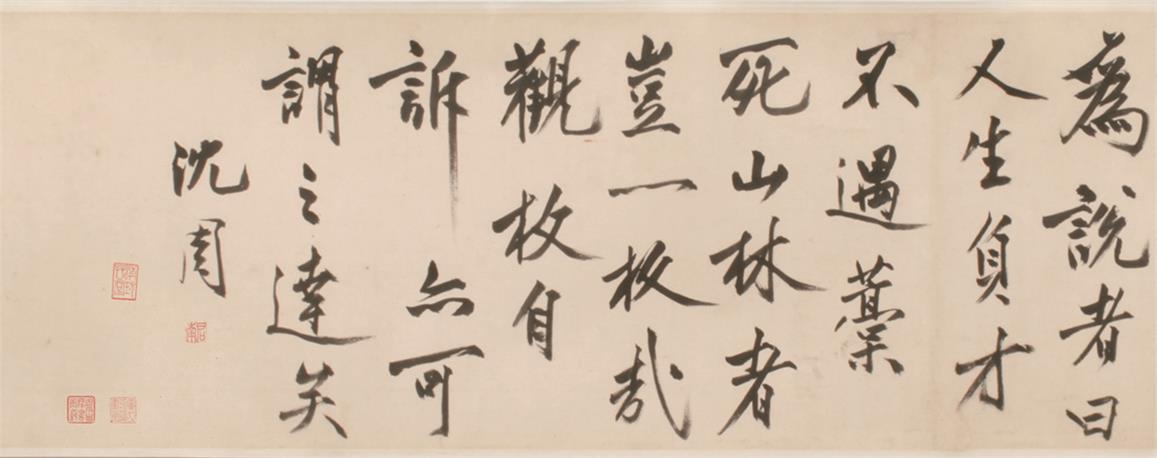 爲說者曰
人生負才
不遇藁
死山林者
豈一枚哉
觀枚自
訴亦可
謂之達矣
沈周